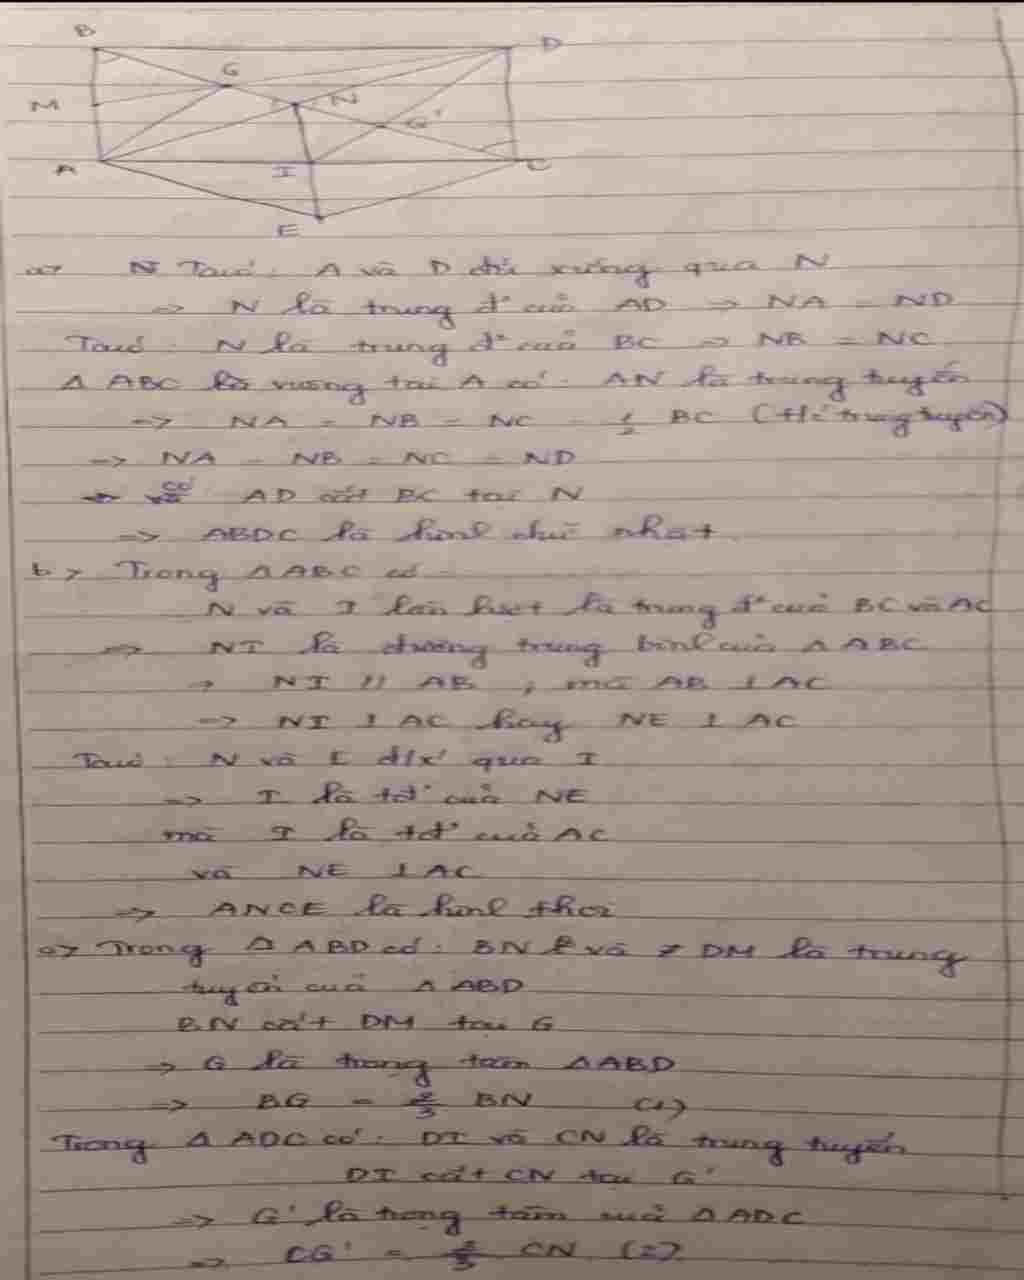 B
D
G
M
N
G'
A
I
C
E
a> N Ta có: A và D đối xứng qua N
=> N là trung đ' của AD => NA = ND
Ta có: N là trung đ' của BC => NB = NC
Δ ABC là vuông tại A có: AN là trung tuyến
=> NA = NB = NC = 1/2 BC (t/c trung tuyến)
=> NA = NB = NC = ND
có AD cắt BC tại N
=> ABDC là hình chữ nhật
b> Trong Δ ABC có
N và I lần lượt là trung đ' của BC và AC
=> NI là đường trung bình của Δ ABC
-> NI // AB , mà AB ⊥ AC
=> NI ⊥ AC hay NE ⊥ AC
Ta có: N và E đ/x' qua I
=> I là tđ' của NE
mà I là tđ' của AC
và NE ⊥ AC
=> ANCE là hình thoi
c> Trong Δ ABD có: BN và DM là trung
tuyến của Δ ABD
BN cắt DM tại G
=> G là trọng tâm Δ ABD
=> BG = 2/3 BN (1)
Trong Δ ADC có: DI và CN là trung tuyến
DI cắt CN tại G'
=> G' là trọng tâm của Δ ADC
=> CG' = 2/3 CN (2)